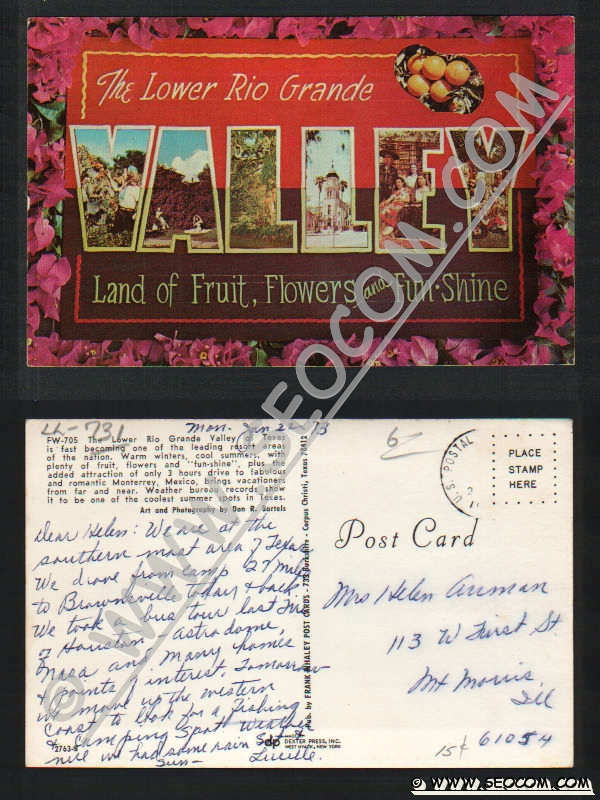 The Lower Rio Grande
VALLEY
Land of Fruit, Flowers and Fun-Shine
© WWW.SEOCOM.COM
LL-731
Mon. Jan 22 73
6
FW-705 The Lower Rio Grande Valley of Texas
is fast becoming one of the leading resort areas
of the nation. Warm winters, cool summers, with
plenty of fruit, flowers and "fun-shine", plus the
added attraction of only 3 hours drive to fabulous
and romantic Monterrey, Mexico, brings vacationers
from far and near. Weather bureau records show
it to be one of the coolest summer spots in Texas.
Art and Photography by Don R. Bartels
Dear Helen: We are at the
southern most area of Texas
We drove from camp 27 miles
to Brownsville today & back
We took a bus tour last Fri
of Houston - Astrodome,
Nasa and Many homes
& points of interest. Tomorrow
we move up the western
Coast to look for a Fishing
& Camping Spot. Weather
nice we had some rain Sat &
Sun- Lucille.
72763-B
dp
DEXTER PRESS, INC.
WEST NYACK, NEW YORK
Pub. by FRANK WHALEY POST CARDS - 733 - Corpus Christi, Texas 78412
U.S. POSTAL
PLACE
STAMP
HERE
Post Card
Mrs Helen Auman
113 W First St
Mt Morris,
Ill
15¢ 61054
© WWW.SEOCOM.COM